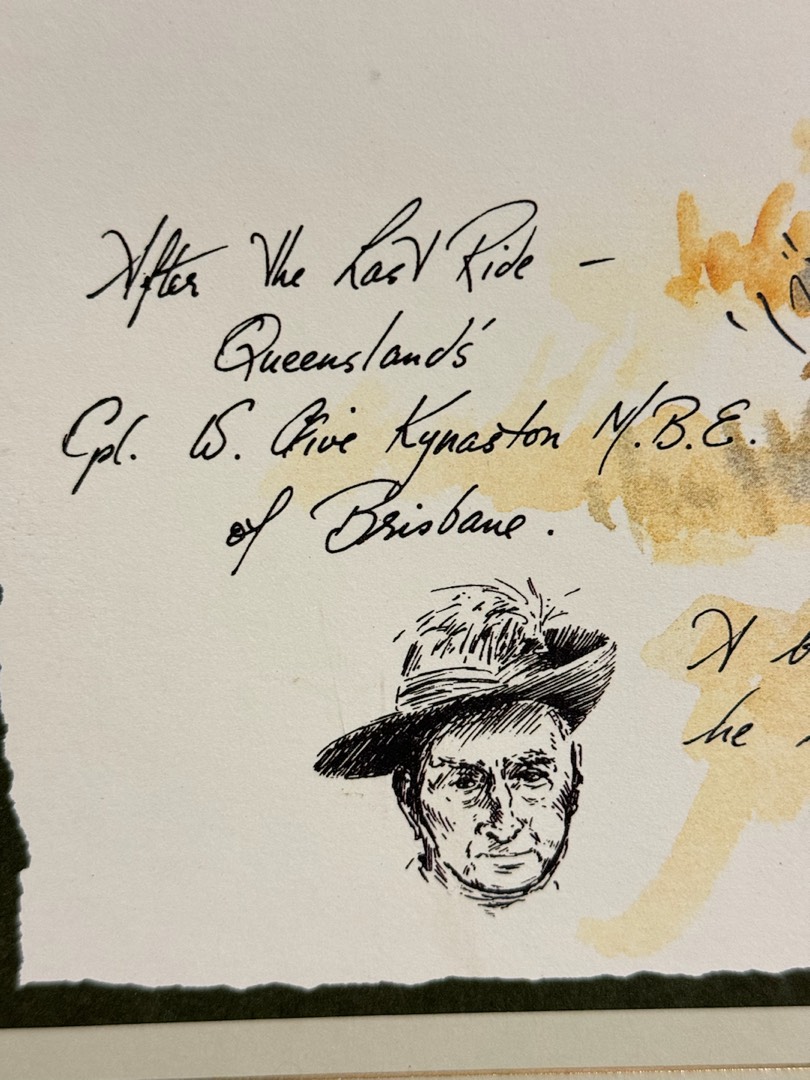 After The Last Ride -
Queenslands'
Cpl. W. Clive Kynaston M.B.E.
of Brisbane.
A
he